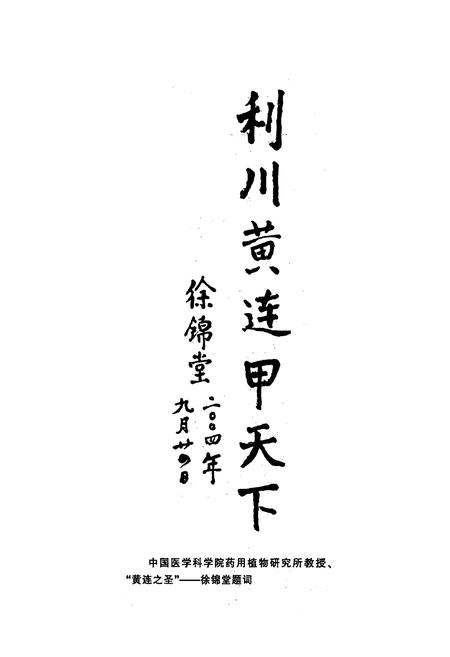 利川黄连甲天下
徐锦堂
二〇〇四年
九月廿四日
中国医学科学院药用植物研究所教授、
“黄连之圣”——徐锦堂题词